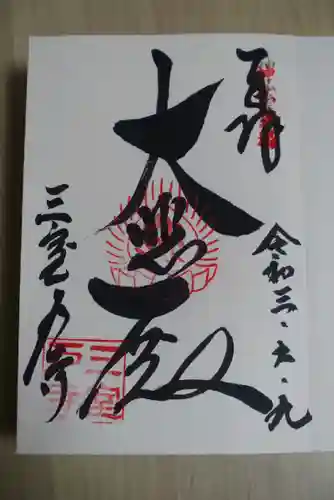 奉拝
令和三・六・九
大悲殿
三室戸寺